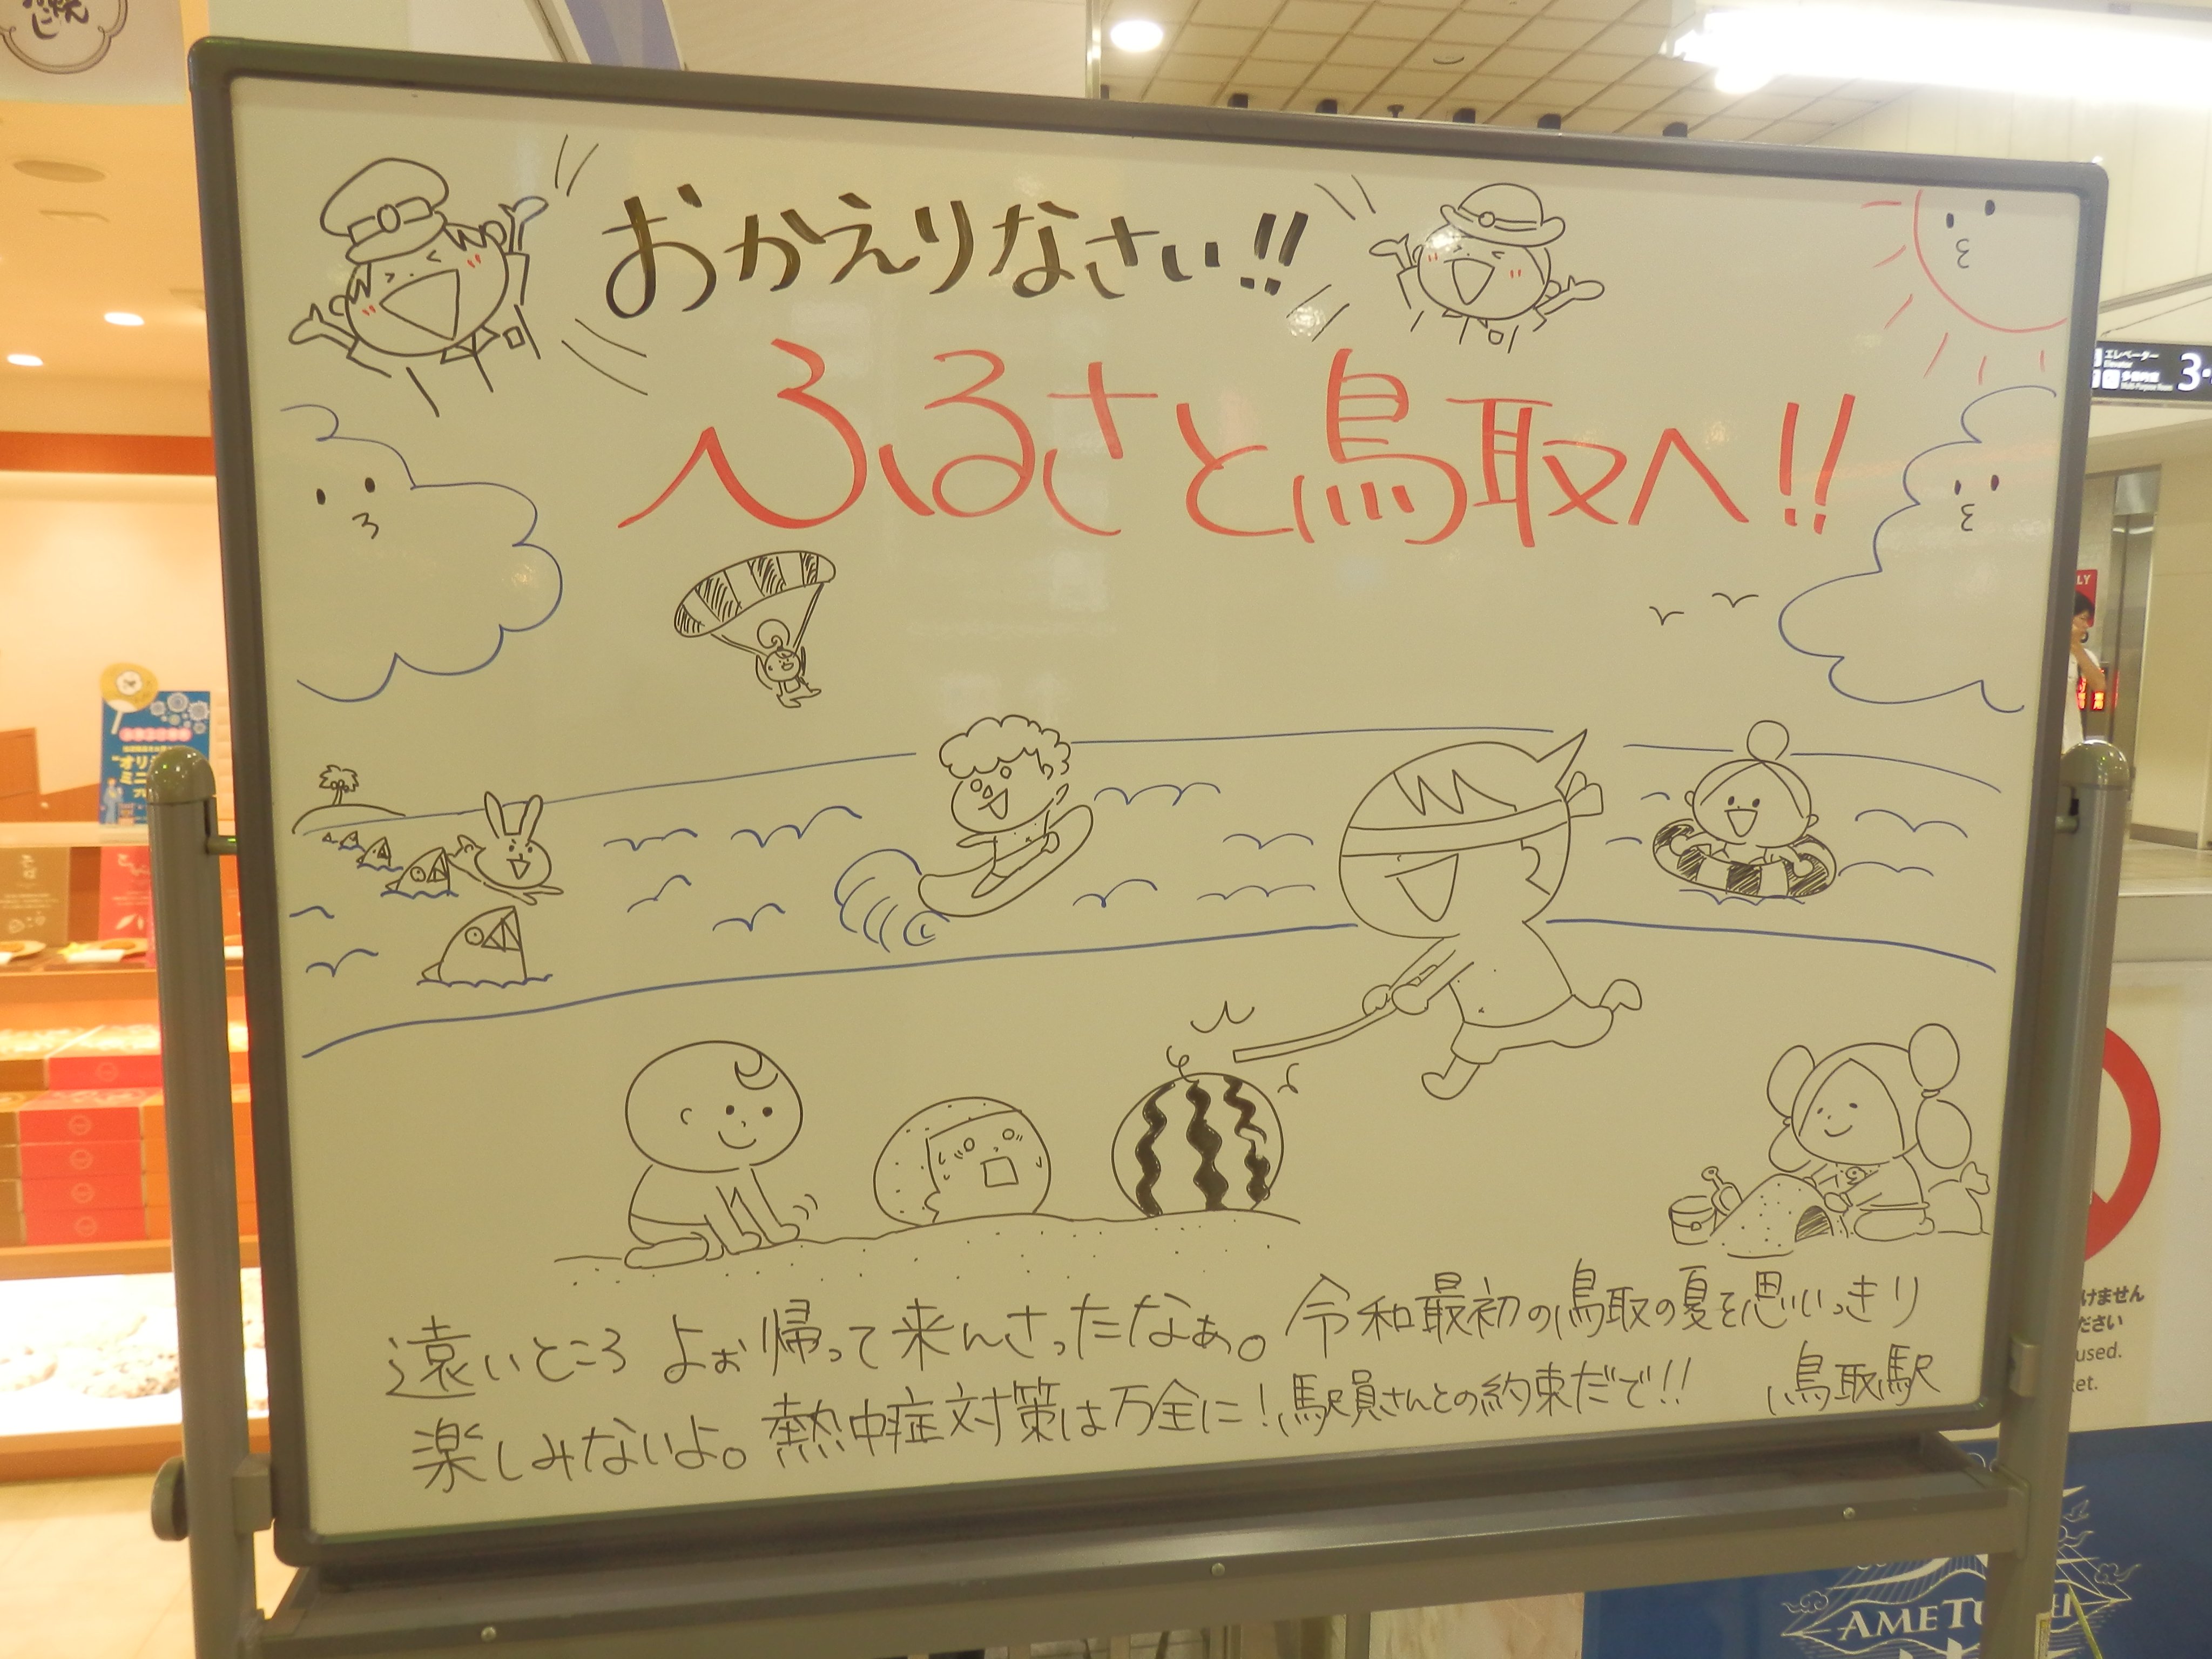 おかえりなさい!!
ふるさと鳥取へ!!
遠いところ よぉ帰って来んさったなぁ。令和最初の鳥取の夏を思いっきり
楽しみないよ。熱中症対策は万全に!駅員さんとの約束だで!! 鳥取駅
エレベーター
Elevator
3
LY
けません
ださい
used.
ket.
"オリ
ミニ
AMETU